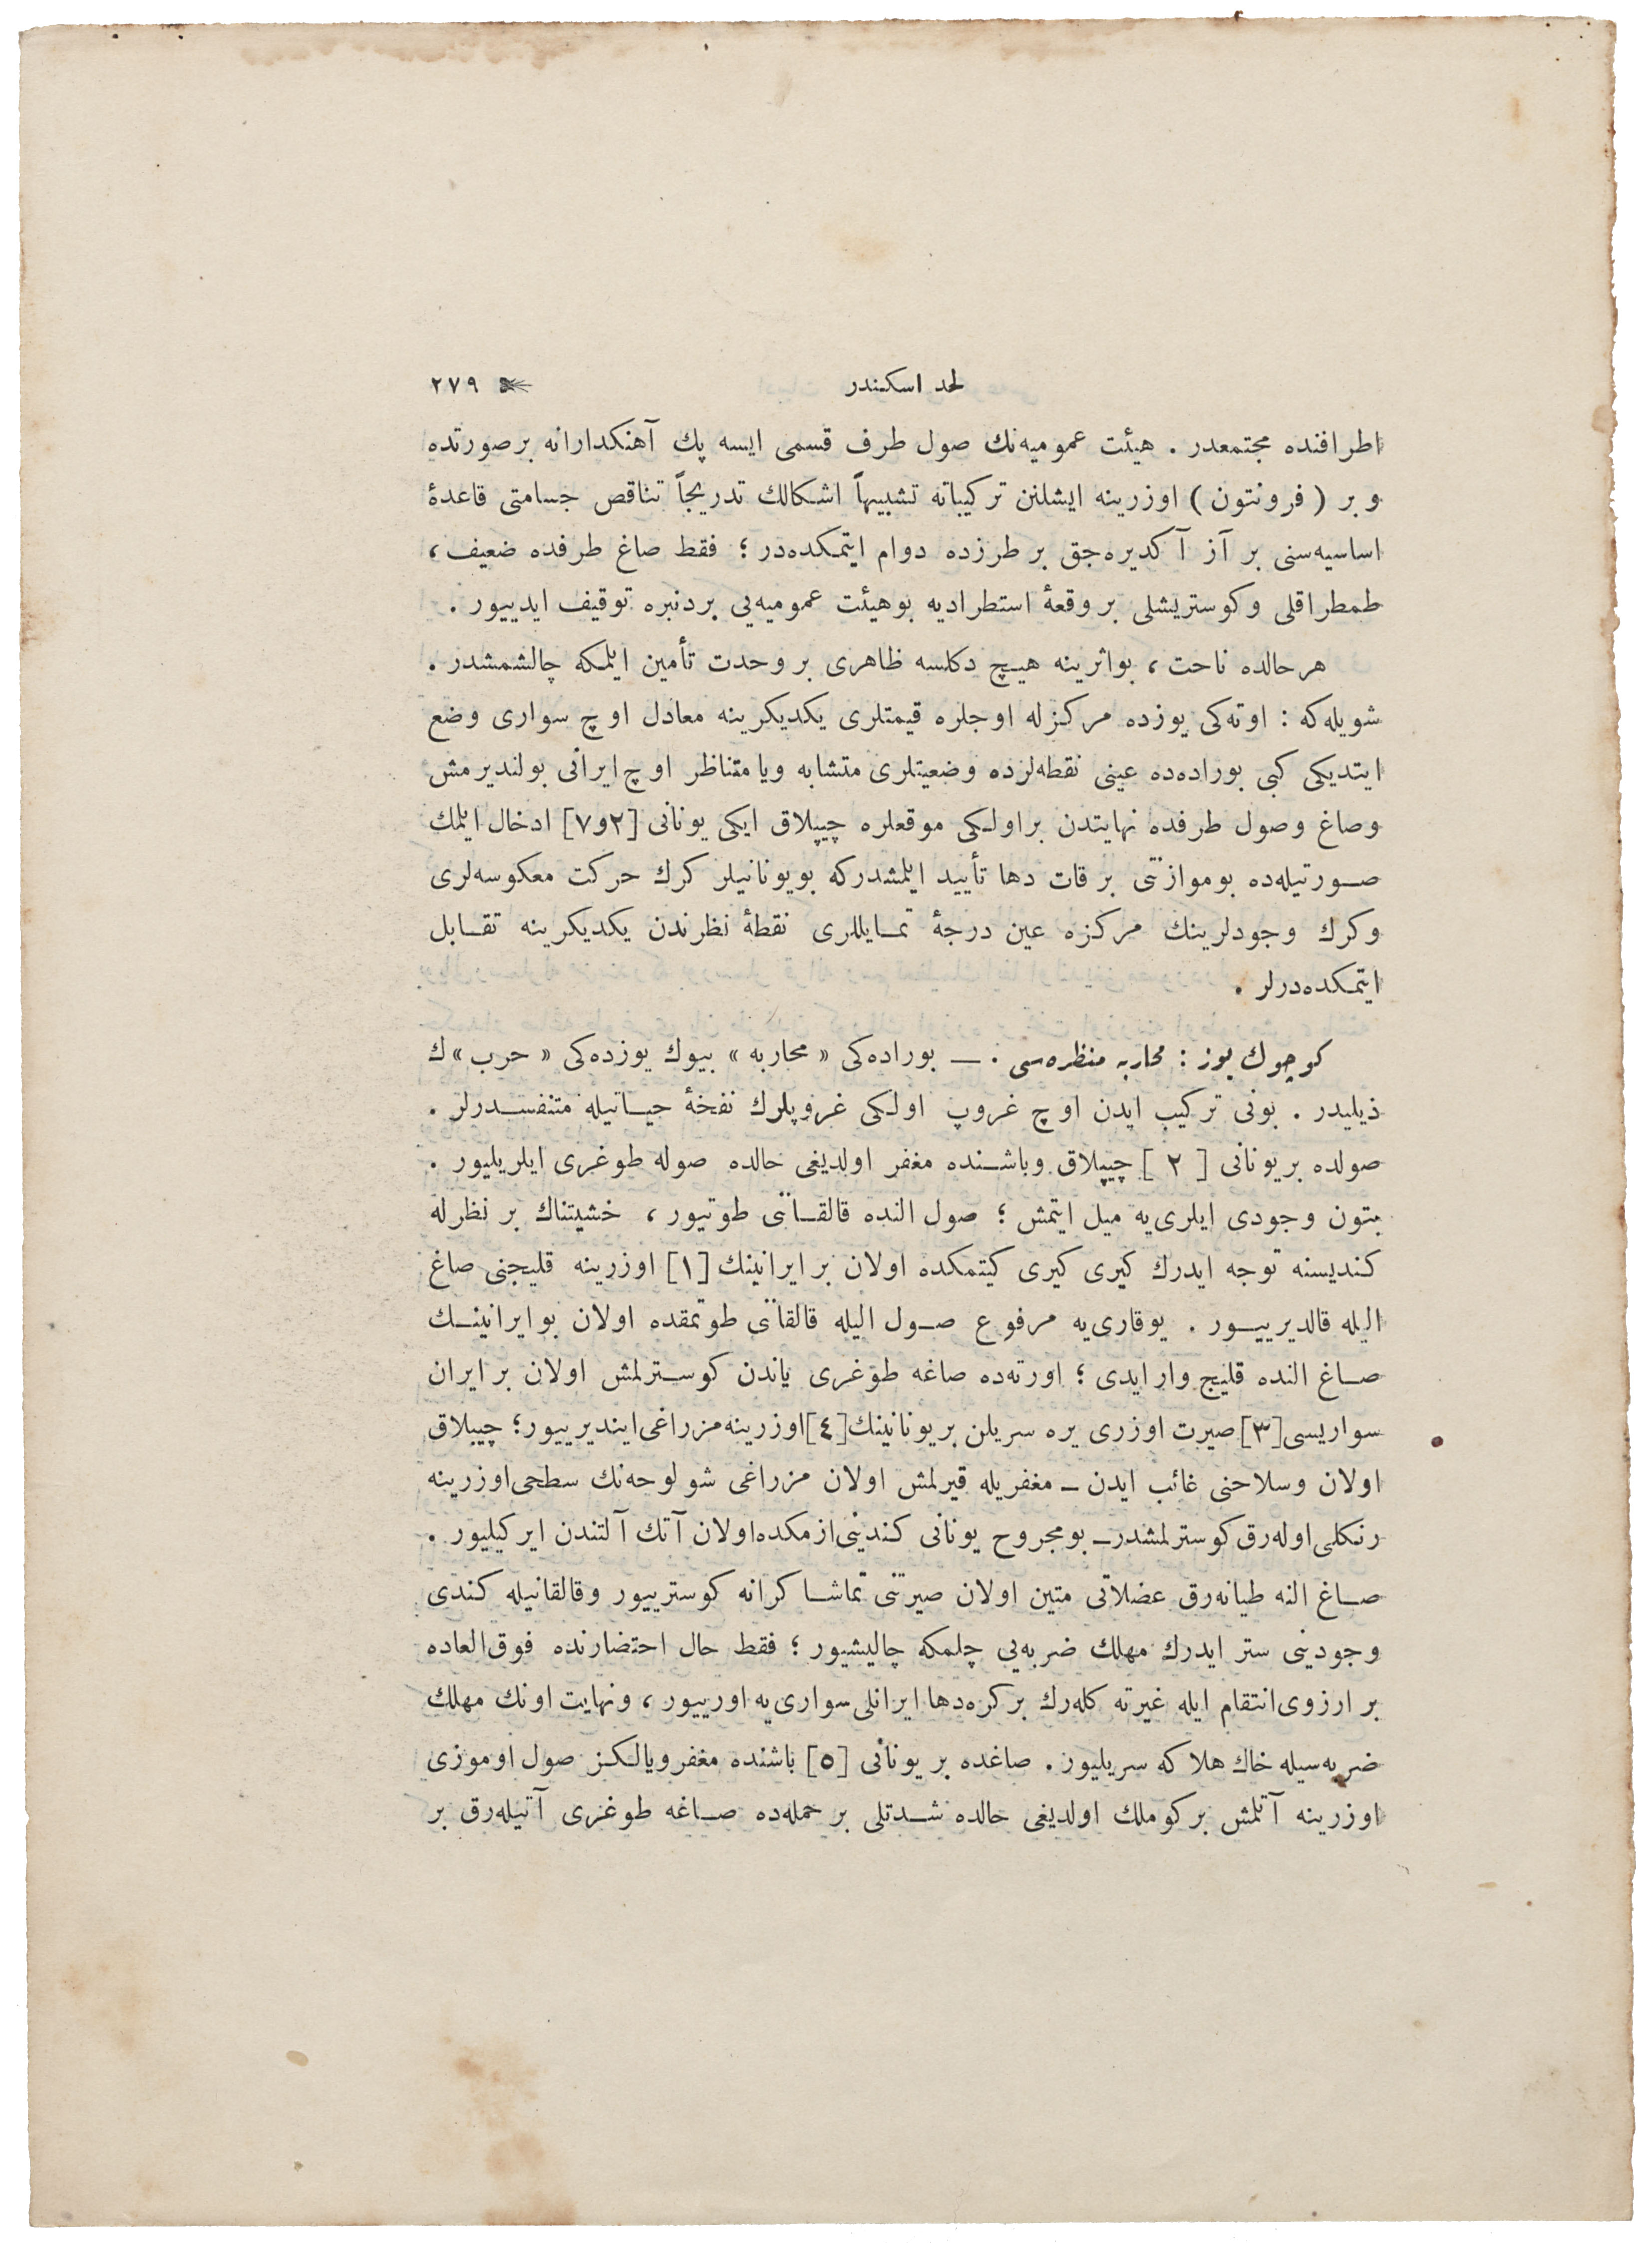 لحد اسكندر ٢٧٩
اطرافنده مجتمعدر . هيئت عموميه‌نك صول طرف قسمى ايسه پك آهنكدارانه برصورتده
و بر ( فرونتون ) اوزرينه ايشلنن تركيباته تشبيهاً اشكالك تدريجاً تناقص جسامتى قاعدهٔ
اساسيه‌سنى بر آز آكديره‌جق بر طرزده دوام ايتمكده‌در ؛ فقط صاغ طرفده ضعيف ،
طمطراقلى و كوستريشلى بر وقعهٔ استطراديه بوهيئت عموميه‌يى بردنبره توقيف ايدييور .
هرحالده ناحت ، بواثرينه هيچ دكلسه ظاهرى بر وحدت تأمين ايلمكه چالشمشدر .
شويله‌كه : اوته‌كى يوزده مركزله اوجلره قيمتلرى يكديكرينه معادل اوچ سوارى وضع
ايتديكى كبى بوراده‌ده عينى نقطه‌لرده وضعيتلرى متشابه ويا متناظر اوچ ايرانى بولنديرمش
وصاغ وصول طرفده نهايتدن براولكى موقعلره چيپلاق ايكى يونانى [٢و٧] ادخال ايلمك
صورتيله‌ده بوموازنتى برقات دها تأييد ايلمشدركه بويونانيلر كرك حركت معكوسه‌لرى
وكرك وجودلرينك مركزه عين درجهٔ تمايللرى نقطهٔ نظرندن يكديكرينه تقابل
ايتمكده‌درلر .
كوچوك يوز : محاربه منظره‌سى . — بوراده‌كى « محاربه » بيوك يوزده‌كى « حرب »ك
ذيليدر . بونى تركيب ايدن اوچ غروپ اولكى غروپلرك نفخهٔ حياتيله متنفسدرلر .
صولده بريونانى [ ٢ ] چيپلاق وباشنده مغفر اولديغى حالده صوله طوغرى ايلريليور .
بتون وجودى ايلرى‌يه ميل ايتمش ؛ صول النده قالقاننى طوتيور ، خشيتناك بر نظرله
كنديسنه توجه ايدرك كيرى كيرى كيتمكده اولان بر ايرانينك [١] اوزرينه قليجنى صاغ
اليله قالديرييور . يوقارى‌يه مرفوع صول اليله قالقاننى طوتمقده اولان بوايرانينك
صاغ النده قليج وارايدى ؛ اورته‌ده صاغه طوغرى ياندن كوسترلمش اولان بر ايران
سواريسى[٣]صيرت اوزرى يره سريلن بريونانينك[٤]اوزرينه مزراغى اينديرييور؛ چيپلاق
اولان وسلاحنى غائب ايدن – مغفريله قيرلمش اولان مزراغى شو لوحه‌نك سطحى اوزرينه
رنكلى اوله‌رق كوسترلمشدر– بومجروح يونانى كندينى ازمكده اولان آتك آلتندن ايركيليور .
صاغ النه طيانه‌رق عضلاتى متين اولان صيرتنى تماشاكرانه كوسترييور وقالقانيله كندى
وجودينى ستر ايدرك مهلك ضربه‌يى چلمكه چاليشيور ؛ فقط حال احتضارنده فوق‌العاده
بر ارزوى انتقام ايله غيرته كله‌رك بركره‌دها ايرانلى سوارى‌يه اورييور ، ونهايت اونك مهلك
ضربه‌سيله خاك هلاكه سريليور . صاغده بر يونانى [٥] باشنده مغفر ويالكز صول اوموزى
اوزرينه آتلمش بركوملك اولديغى حالده شدتلى بر حمله‌ده صاغه طوغرى آتيله‌رق بر